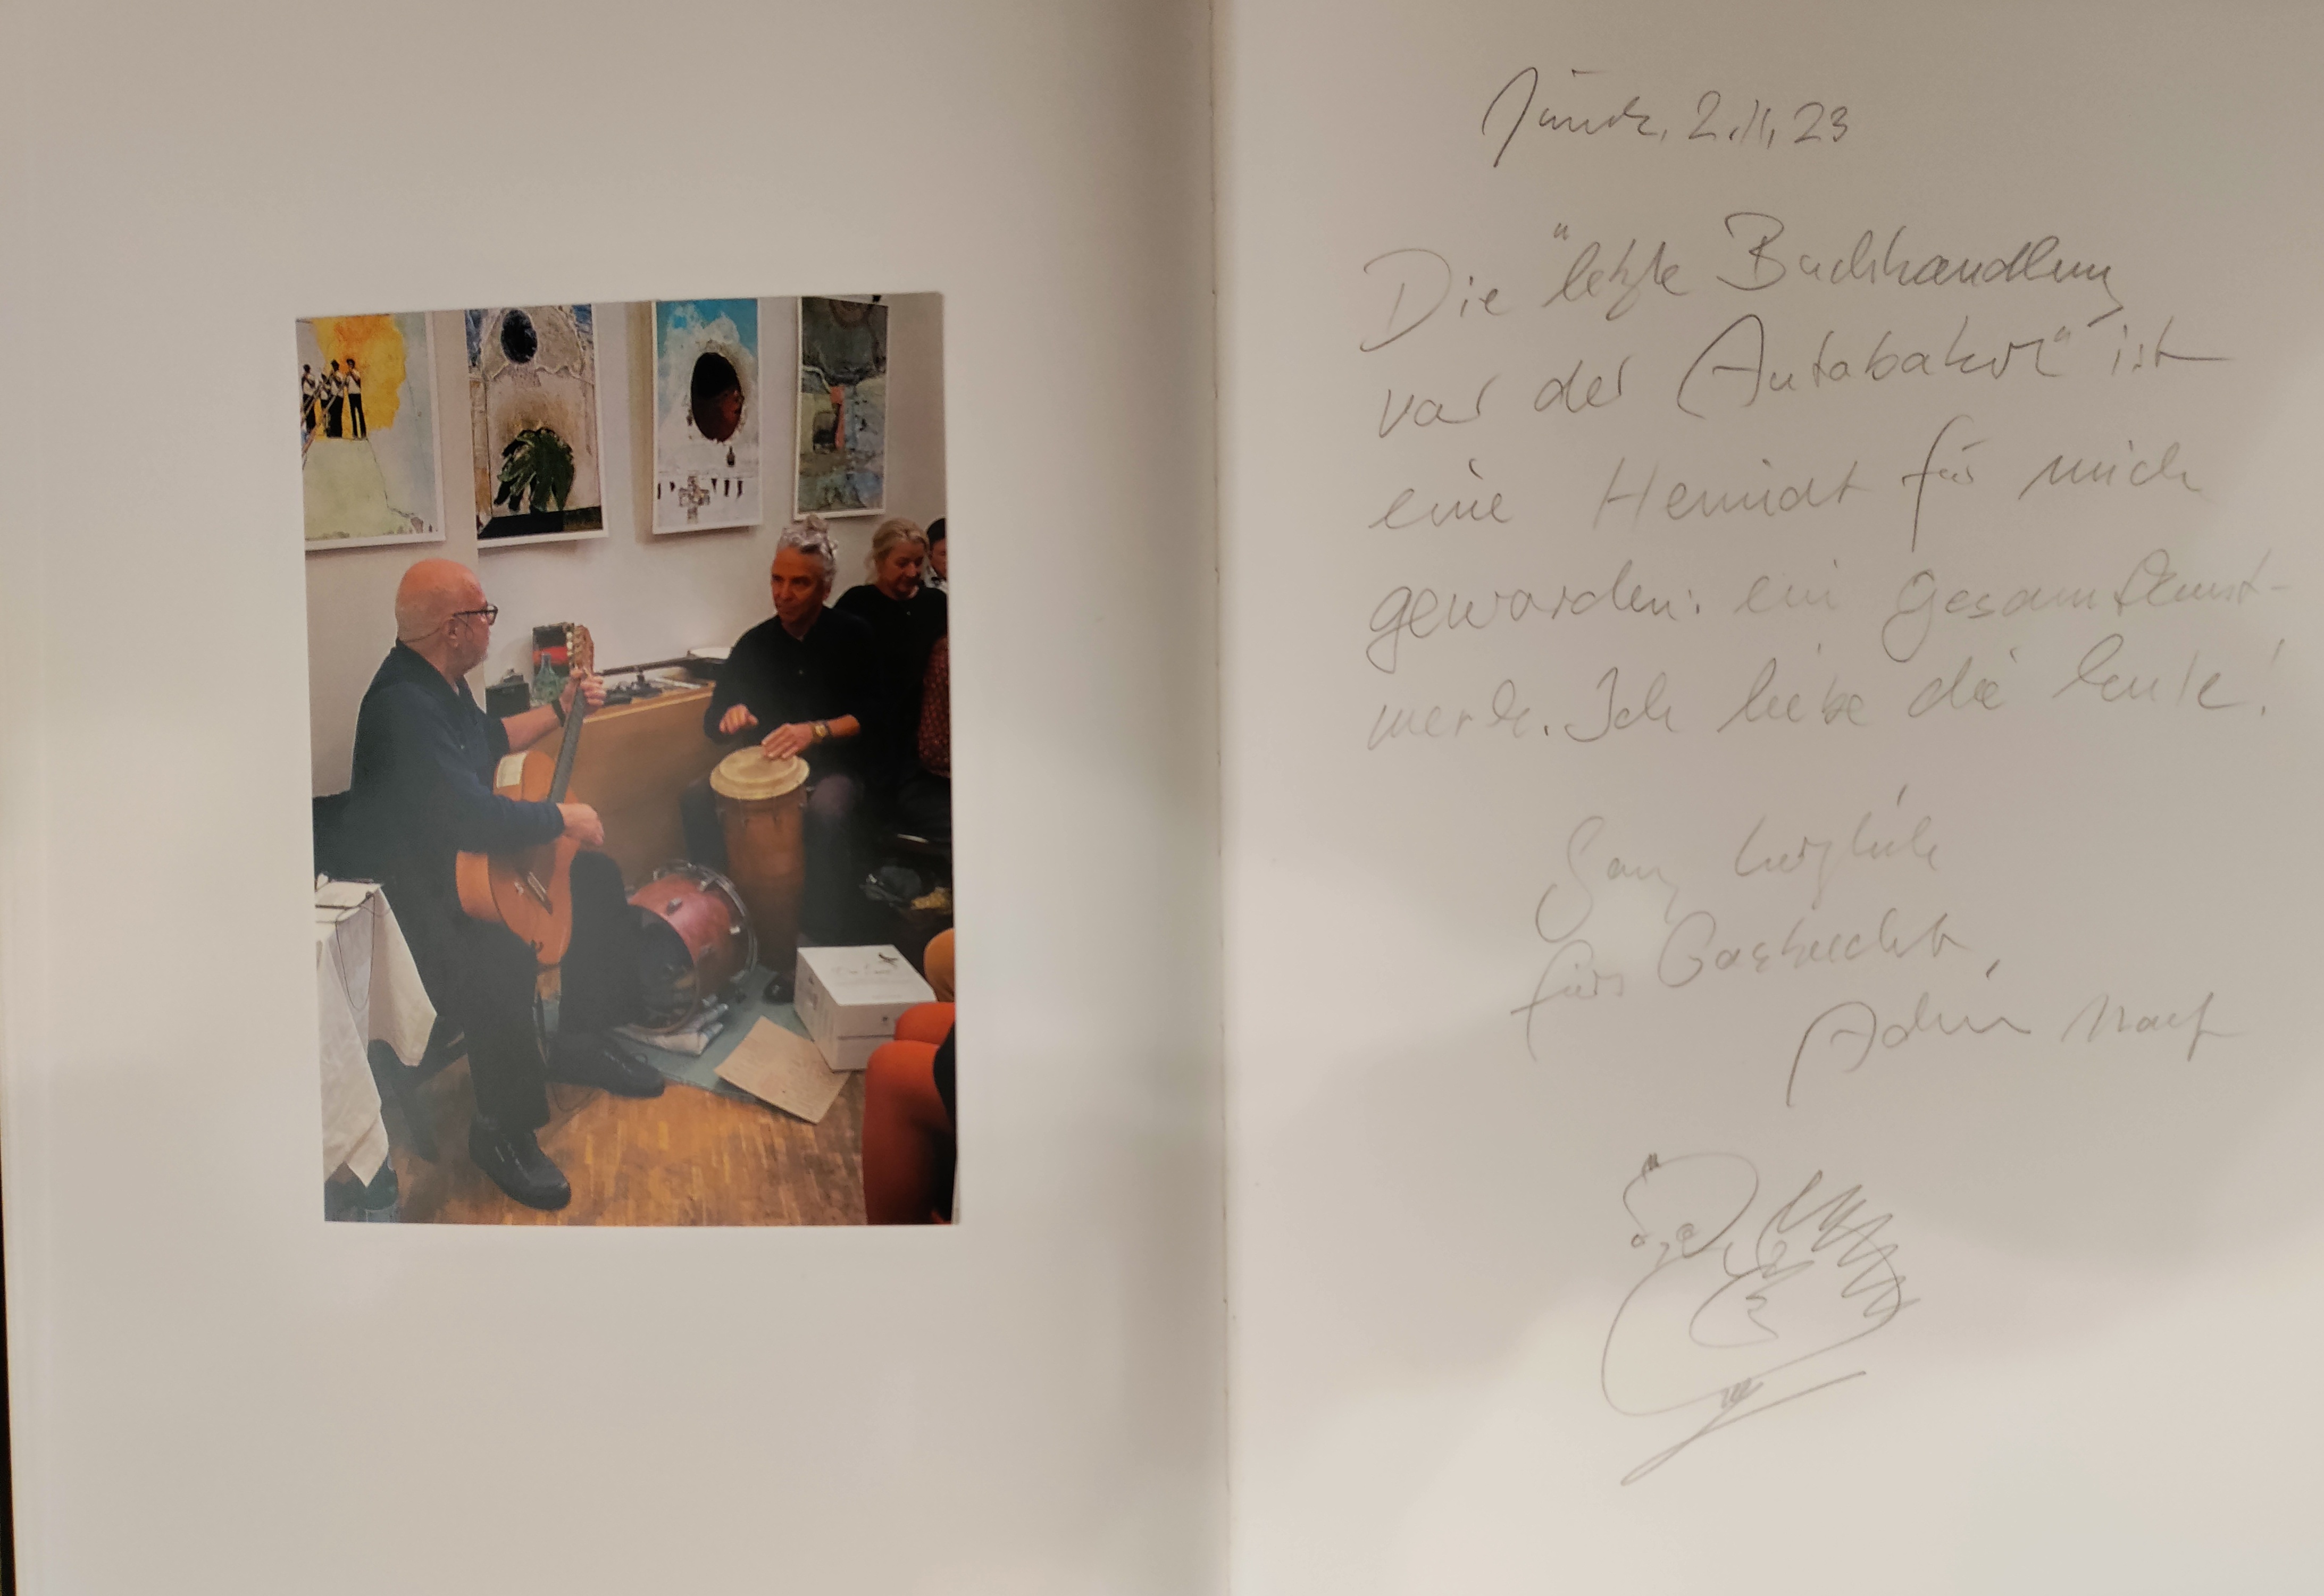 Zürich, 2.11.23
Die "letzte Buchhandlung
vor der Autobahn" ist
eine Heimat für mich
geworden: ein Gesamtkunst-
werk. Ich liebe die Leute!
Ganz herzlich
fürs Gastrecht,